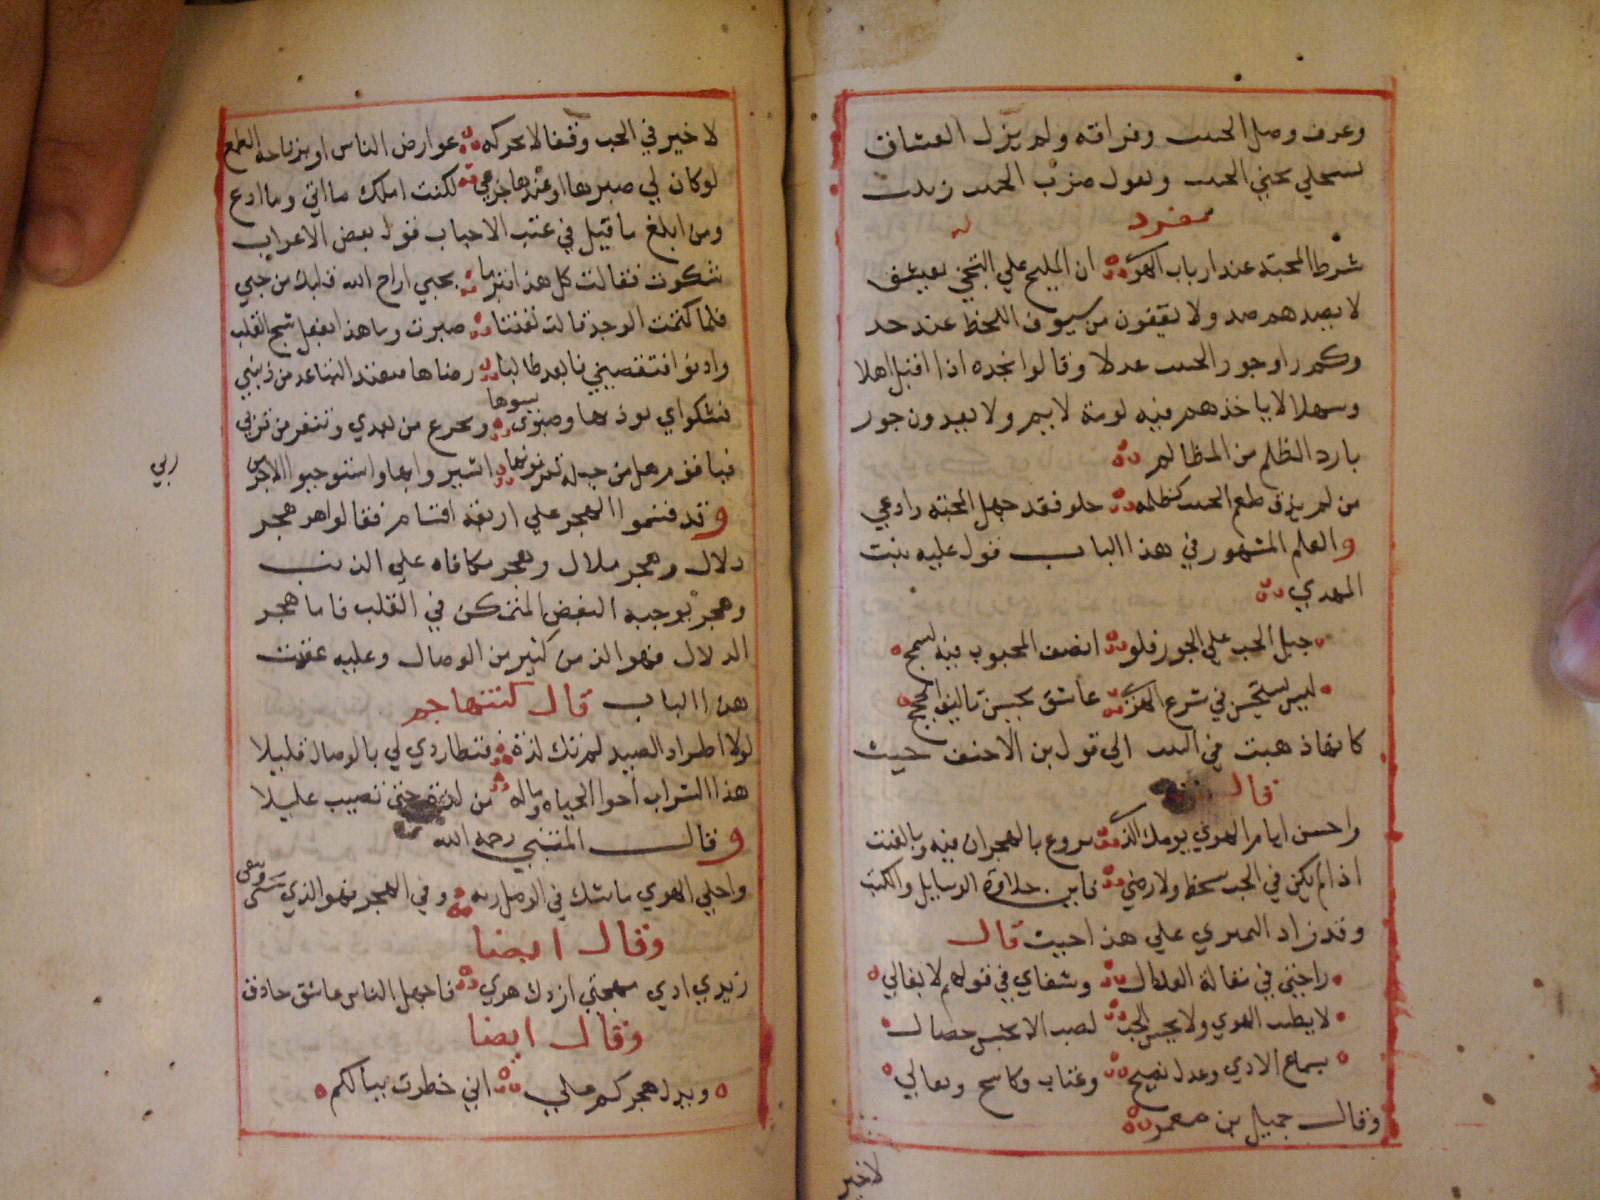 وعرف وصل الحبيب وفراقه ولم يزل العشاق
يستحلي تجني الحبيب ويقول ضرب الحبيب زبيب
مفرد
شرط المحبة عند ارباب الهوي ان المليح علي التجني يعشق
لا يصدهم صد ولا يقفون من سيوف اللحظ عند حد
وكم راو جور الحبيب عدلا وقالوا لخده اذا اقبل اهلا
وسهلا لا ياخذهم فيه لومة لايم ولا يعدون جور
بارد الظلم من المظالم
من لم يذق طعم الحبيب كظلمه حلو فقد جهل المحبة وادعي
والعلم المشهور في هذا الباب قول عليه بنت
المهدي
جبل الحب علي الجور فلو انصف المحبوب فيه لسمج
ليس يستحسن في شرع الهوي عاشق يحسن تاليف الحجج
كانها ذهبت في البيت الي قول بن الاحنف حيث
قال
واحسن ايام الهوي يومك الذي تروع بالهجران فيه وبالعتب
اذا لم يكن في الحب سخط ولا رضي فاين حلاوة الرسايل والكتب
وقد زاد النميري علي هذا حيث قال
راحتي في مقالة العذال وشفاي في قولهم لا يغالي
لا يطيب الهوي ولا يحسن الحب لصب الا بخمس خصال
بسماع الاذي وعذل نصيح وعتاب وكاشح وتغالي
وقال جميل بن معمر
لا خير
لا خير في الحب وقفا لا تحركه عوارض الناس او يرتاحه الطمع
لو كان لي صبرها او عندها جزعي لكنت املك ما اتي وما ادع
ومن ابلغ ما قيل في عتب الاحباب قول بعض الاعراب
شكوت فقالت كل هذا تبرما بحبي اراح الله قلبك من حبي
فلما كتمت الوجد قالت لعنتا صبرت وما هذا بفعل شجي القلب
وادنو فتقصيني فابعد طالبا رضاها فتعتد التباعد من ذنبي
فشكواي توذيها وصبري يسوها وتجزع من بعدي وتنفر من قربي
فيا قوم هل من حيلة تعرفونها اشيروا بها واستوجبوا الاجر من
ربي
وقد قسموا الهجر علي اربعة اقسام فقالوا هو هجر
دلال وهجر ملال وهجر مكافاه علي الذنب
وهجر يوجبه البغض المتمكن في القلب فاما هجر
الدلال فهو الذ من كثير من الوصال وعليه عقدت
هذا الباب قال كشاجم
لولا اطراد الصيد لم تك لذة فتطاردي لي بالوصال قليلا
هذا الشراب اخو الحياه وماله من لذة حتي تصيب غليلا
وقال المتنبي رحمه الله
واحلي الهوي ما شك في الوصل ربه وفي الهجر فهو الذي يرجو ويتقى
وقال ايضا
زيدي اذي مهجتي ازدك هوي فاجهل الناس عاشق حاقد
وقال ايضا
ويدل هجركم علي اني خطرت ببالكم